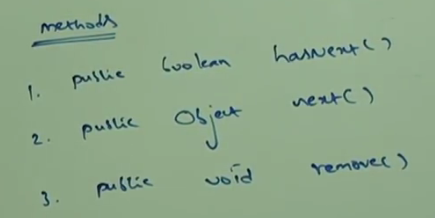 methods
1. public boolean hasNext()
2. public Object next()
3. public void remove()